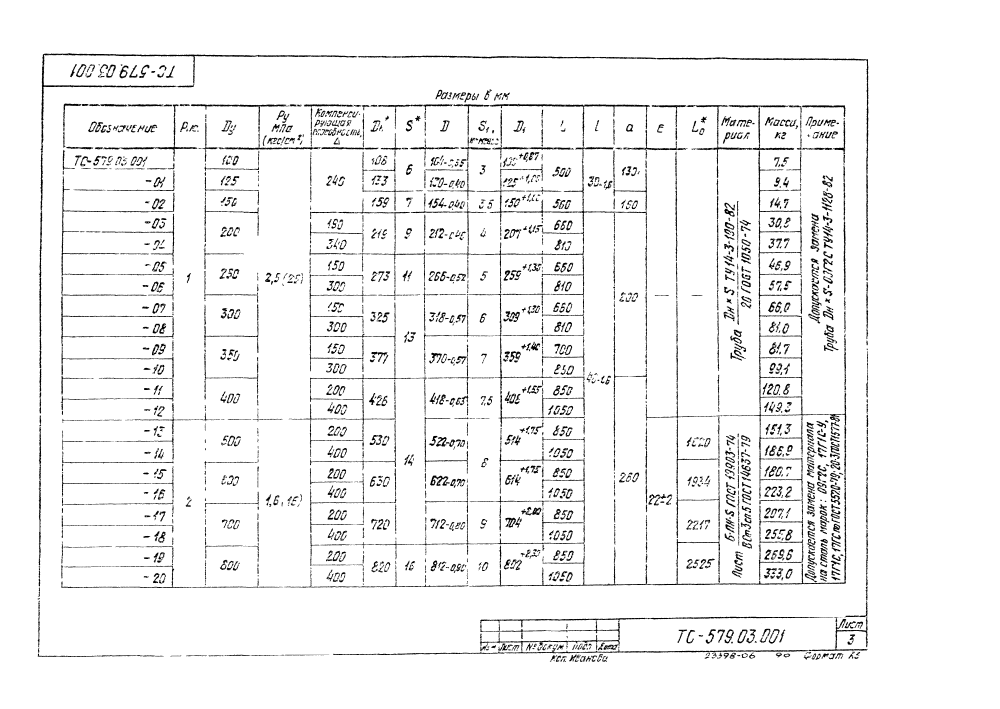 ТС-579.03.001
Размеры в мм
Обозначение Рис. Dу Pу МПа (кгс/см²) Компенсирующая способность, Δ Dн* S* D S1, не менее D1 L l a c L0* Материал Масса, кг Примечание
ТС-579.03.001 1 100 2,5 (25) 240 108 6 3 500 130 — — 7,5
-01 125 133 130-0,40 9,4
-02 150 159 7 154-0,40 3,5 560 14,7
-03 200 190 219 9 4 207+1,15 660 200 30,8
-04 340 810 37,7
-05 250 150 273 11 5 259+1,30 660 46,9
-06 300 810 57,5
-07 300 150 325 13 318-0,57 6 309+1,30 660 66,0
-08 300 810 81,0
-09 350 150 377 370-0,57 7 359+1,40 700 81,7
-10 300 850 99,1
-11 400 200 426 418-0,63 7,5 406+1,55 850 260 120,8
-12 400 1050 149,3
-13 2 500 1,6 (16) 200 530 14 522-0,70 8 514+1,75 850 22±2 151,3
-14 400 1050 186,9
-15 600 200 630 622-0,70 614+1,75 850 1934 180,7
-16 400 1050 223,2
-17 700 200 720 712-0,80 9 704+2,00 850 2217 207,1
-18 400 1050 255,8
-19 800 200 820 16 812-0,90 10 802+2,30 850 2525 269,6
-20 400 1050 333,0
Труба Dн×S ТУ14-3-190-82
20 ГОСТ 1050-74
Допускается замена
Труба Dн×S-09Г2С ТУ14-3-1128-82
Лист Б-ПН-S ГОСТ 19903-74
ВСт3сп5 ГОСТ 14637-79
Допускается замена материала
на сталь марок: 09Г2С, 17Г1С-У,
Изм Лист № докум Подп Дата
ТС-579.03.001
Лист
3
Коп. Иванова
23398-06 90 Формат А3